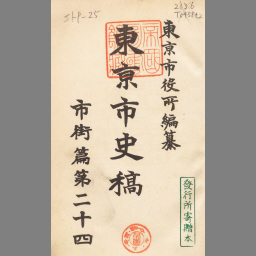 東京市役所編纂
東京市史稿
市街篇第二十四
發行所寄贈本